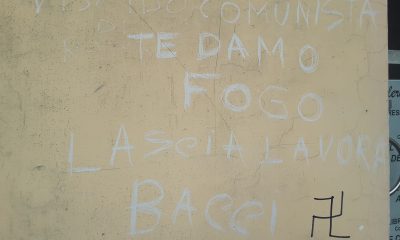 COMUNISTA
TE DAMO
FOGO
LASCIA LAVORA
BACCI